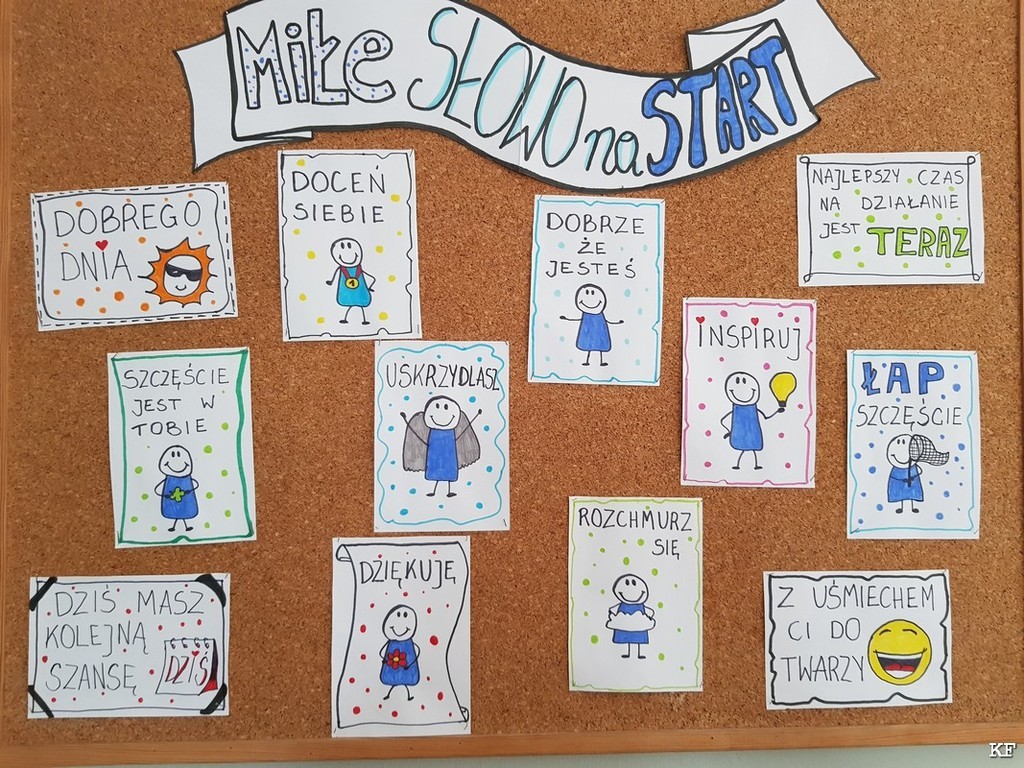 MiŁe SŁOWO na START
DOBREGO
DNIA
DOCEŃ
SIEBIE
1
DOBRZE
ŻE
JESTEŚ
NAJLEPSZY CZAS
NA DZIAŁANIE
JEST TERAZ
SZCZĘŚCIE
JEST W
TOBIE
USKRZYDLASZ
INSPIRUJ
ŁAP
SZCZĘŚCIE
DZIŚ MASZ
KOLEJNĄ
SZANSĘ
DZIŚ
DZIĘKUJĘ
ROZCHMURZ
SIĘ
Z UŚMIECHEM
CI DO
TWARZY
KF